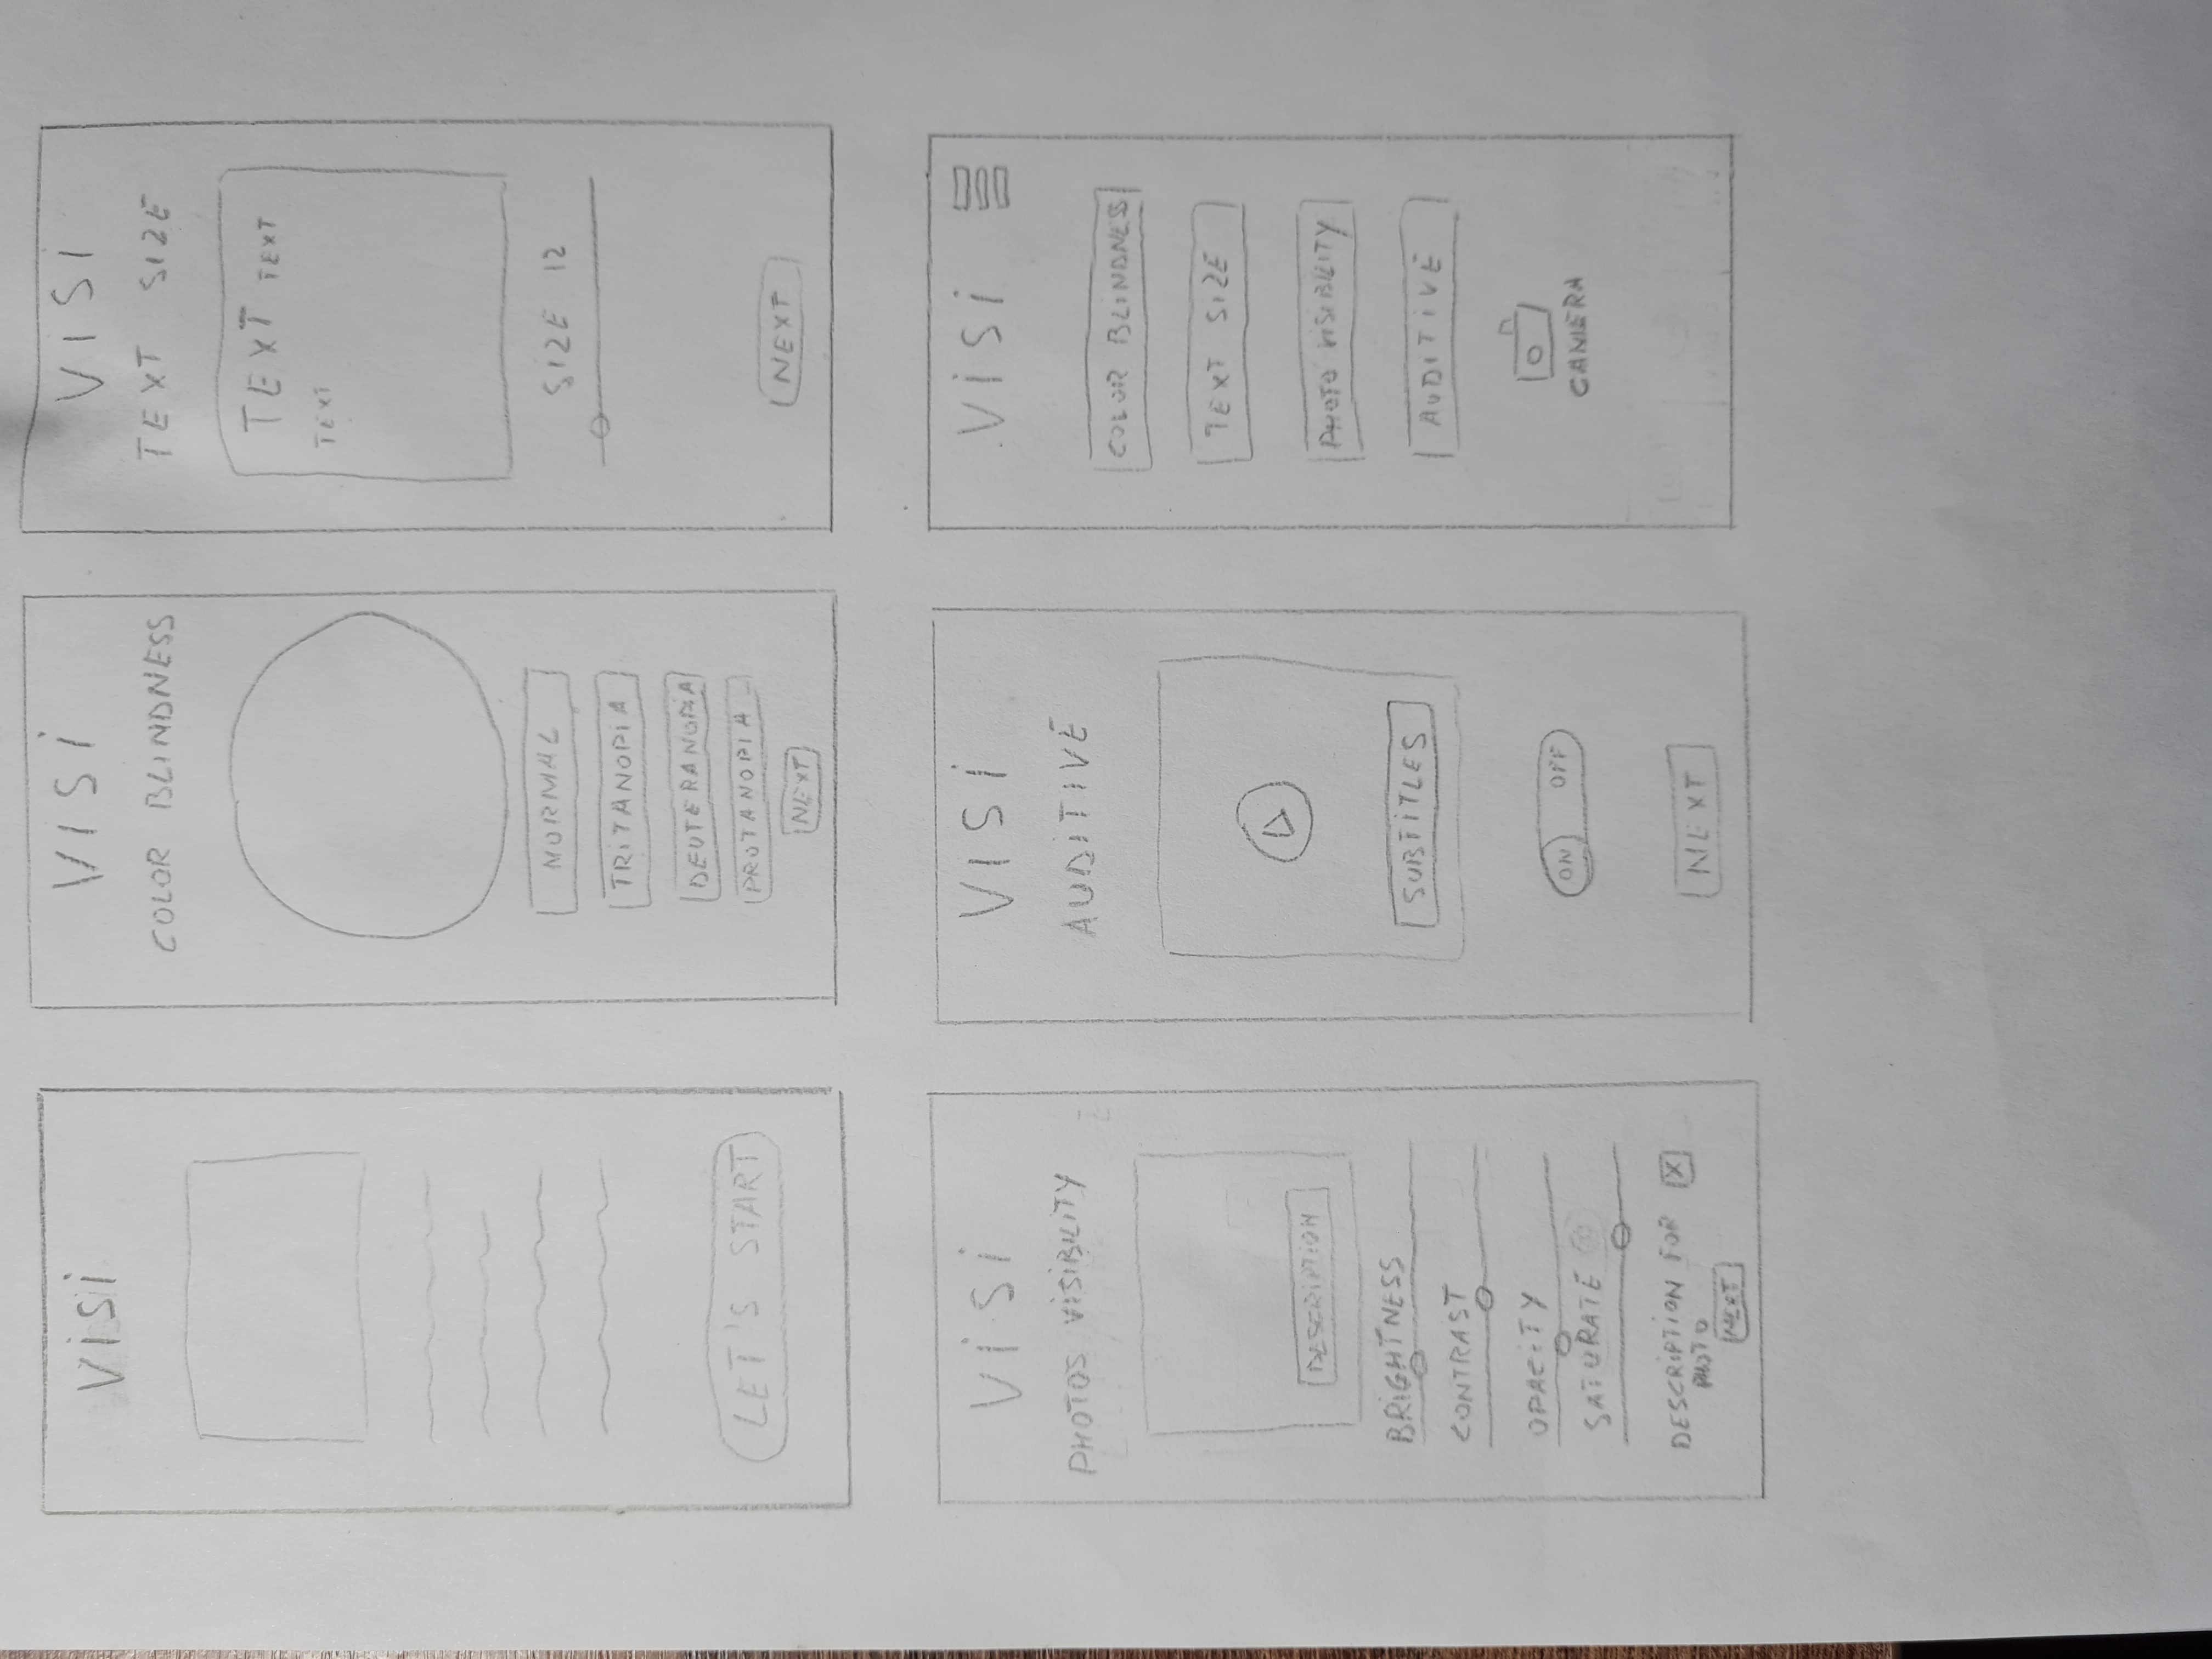 ViSi
LET'S START
VISi
COLOR BLiNDNESS
NORMAL
TRiTANOPiA
DEUTERANOPiA
PROTANOPIA
NEXT
VISI
TEXT SIZE
TEXT TEXT
TEXT
SiZE 12
NEXT
ViSi
PHOTOS VISIBILITY
DESCRIPTION
BRiGHTNESS
CONTRAST
OPACiTY
SATURATE
DESCRIPTION FOR X
PHOTO
NEXT
VISi
AUDiTiVE
SUBTiTLES
ON OFF
NEXT
ViSi
COLOR BLiNDNESS
TEXT SiZE
PHOTO VISIBILITY
AUDITIVE
CAMERA